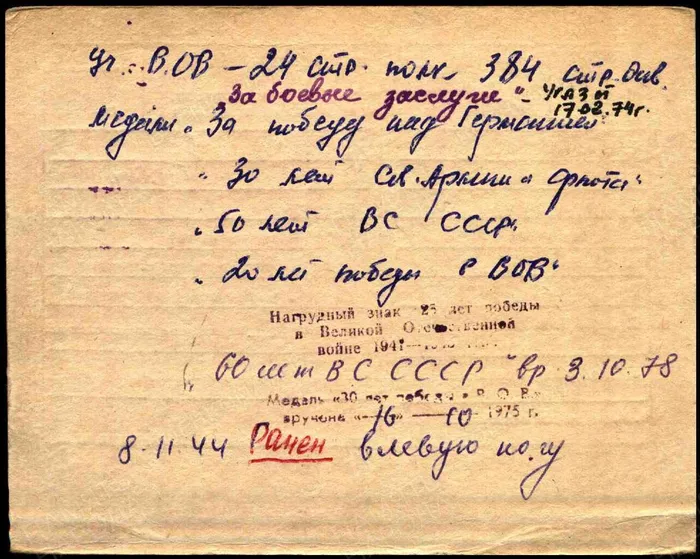 уч. ВОВ – 24 стр. полк, 384 стр. див.
"За боевые заслуги" – Указ от 17.02.74г.
Медали "За победу над Германией"
"30 лет Св. Армии и флота"
"50 лет ВС СССР"
"20 лет победы в ВОВ"
Нагрудный знак 25 лет победы
в Великой Отечественной
войне 1941—
"60 лет ВС СССР" вр 3.10.78
Медаль «30 лет победы в В.О.В.»
вручена «16» 10 1975 г.
8.11.44 Ранен в левую ногу